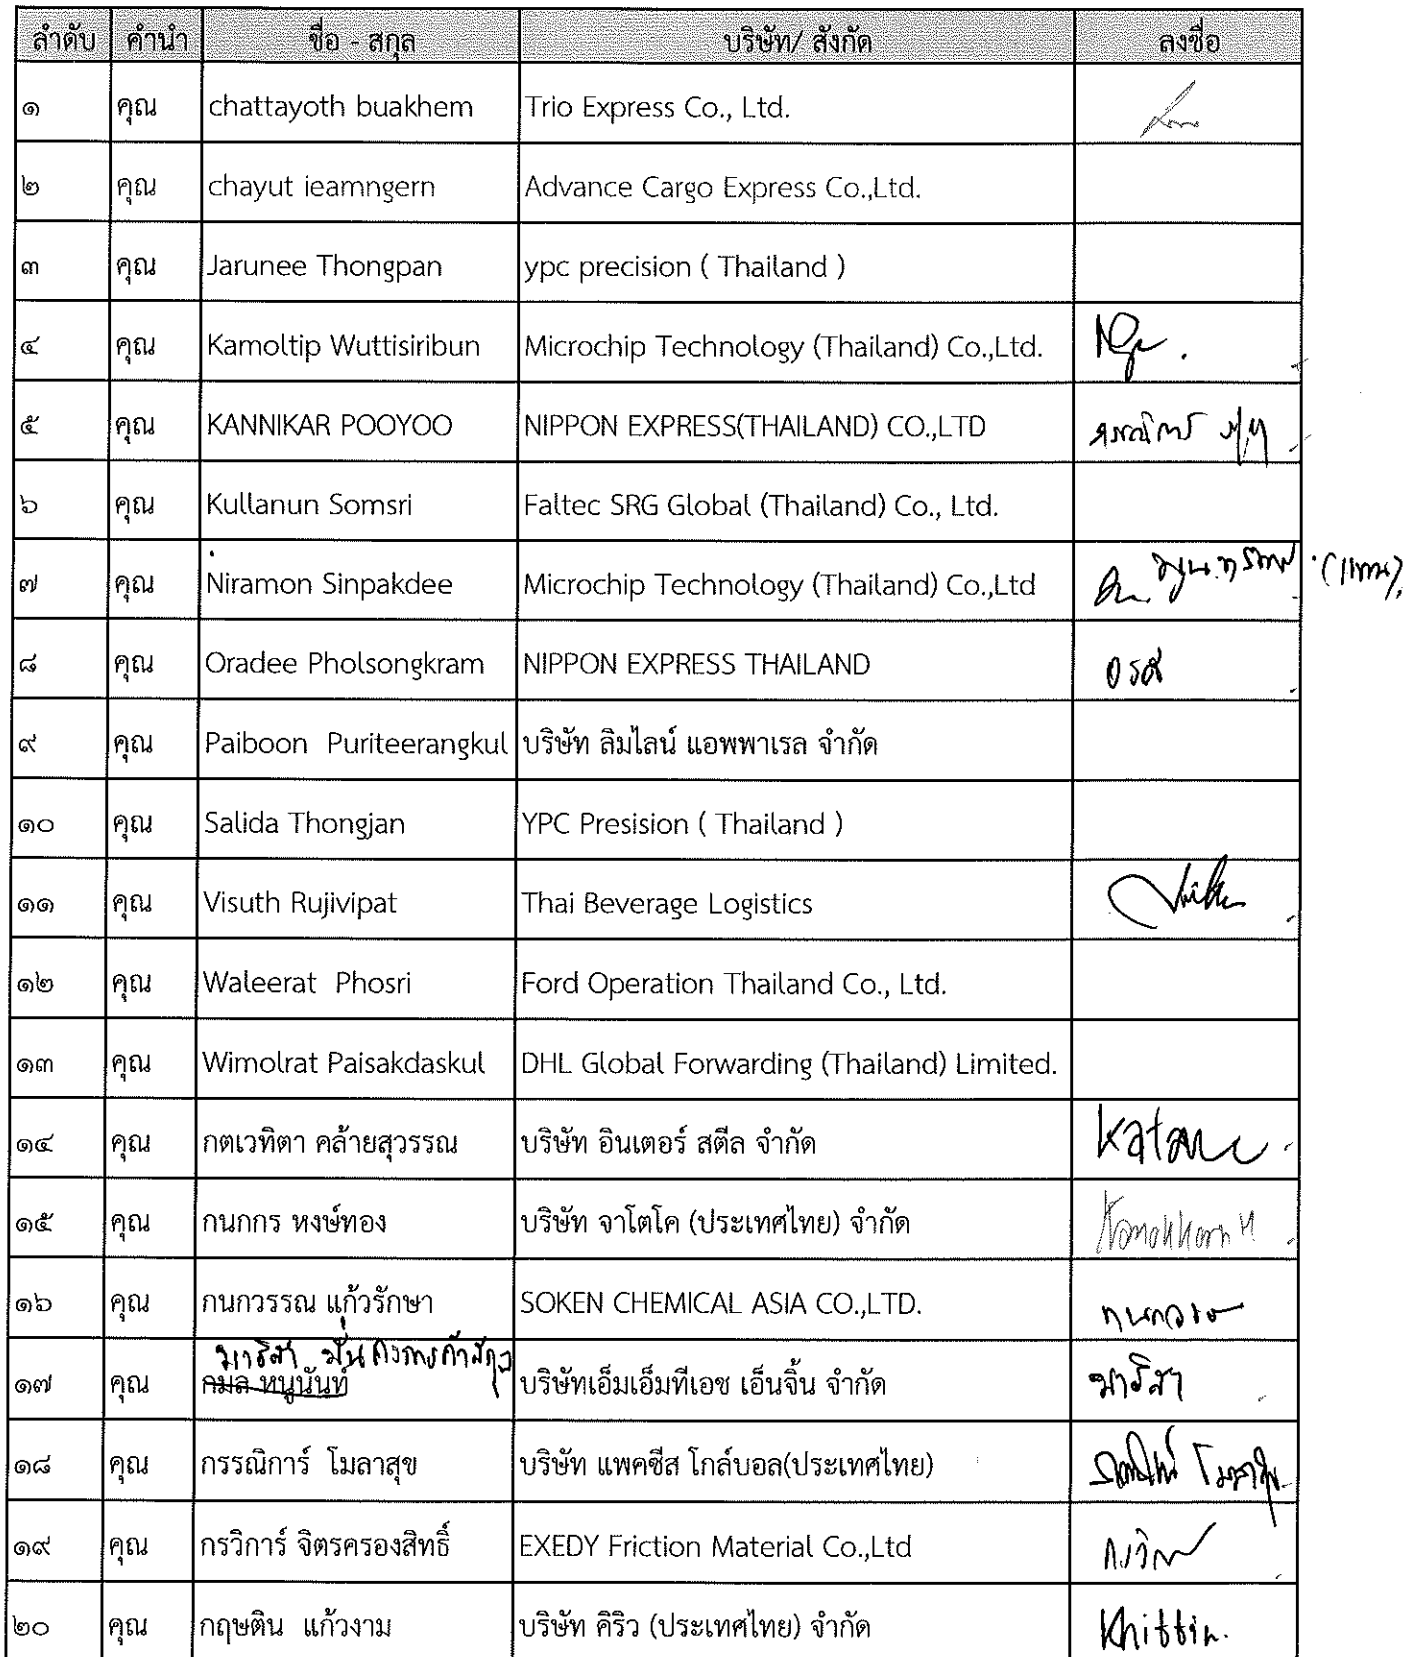 ลำดับ คำนำ ชื่อ - สกุล บริษัท/ สังกัด ลงชื่อ
๑ คุณ chattayoth buakhem Trio Express Co., Ltd.
๒ คุณ chayut ieamngern Advance Cargo Express Co.,Ltd.
๓ คุณ Jarunee Thongpan ypc precision ( Thailand )
๔ คุณ Kamoltip Wuttisiribun Microchip Technology (Thailand) Co.,Ltd.
๕ คุณ KANNIKAR POOYOO NIPPON EXPRESS(THAILAND) CO.,LTD
๖ คุณ Kullanun Somsri Faltec SRG Global (Thailand) Co., Ltd.
๗ คุณ Niramon Sinpakdee Microchip Technology (Thailand) Co.,Ltd (แทน)
๘ คุณ Oradee Pholsongkram NIPPON EXPRESS THAILAND อรดี
๙ คุณ Paiboon Puriteerangkul บริษัท ลิมไลน์ แอพพาเรล จำกัด
๑๐ คุณ Salida Thongjan YPC Presision ( Thailand )
๑๑ คุณ Visuth Rujivipat Thai Beverage Logistics
๑๒ คุณ Waleerat Phosri Ford Operation Thailand Co., Ltd.
๑๓ คุณ Wimolrat Paisakdaskul DHL Global Forwarding (Thailand) Limited.
๑๔ คุณ กตเวทิตา คล้ายสุวรรณ บริษัท อินเตอร์ สตีล จำกัด
๑๕ คุณ กนกกร หงษ์ทอง บริษัท จาโตโค (ประเทศไทย) จำกัด Kanokkorn H
๑๖ คุณ กนกวรรณ แก้วรักษา SOKEN CHEMICAL ASIA CO.,LTD. กนกวรรณ
มาริสา
๑๗ คุณ กมล หนูนันท์ บริษัทเอ็มเอ็มทีเอช เอ็นจิ้น จำกัด มาริสา
๑๘ คุณ กรรณิการ์ โมลาสุข บริษัท แพคชีส โกล์บอล(ประเทศไทย)
๑๙ คุณ กรวิการ์ จิตรครองสิทธิ์ EXEDY Friction Material Co.,Ltd
๒๐ คุณ กฤษติน แก้วงาม บริษัท คิริว (ประเทศไทย) จำกัด Khittin.